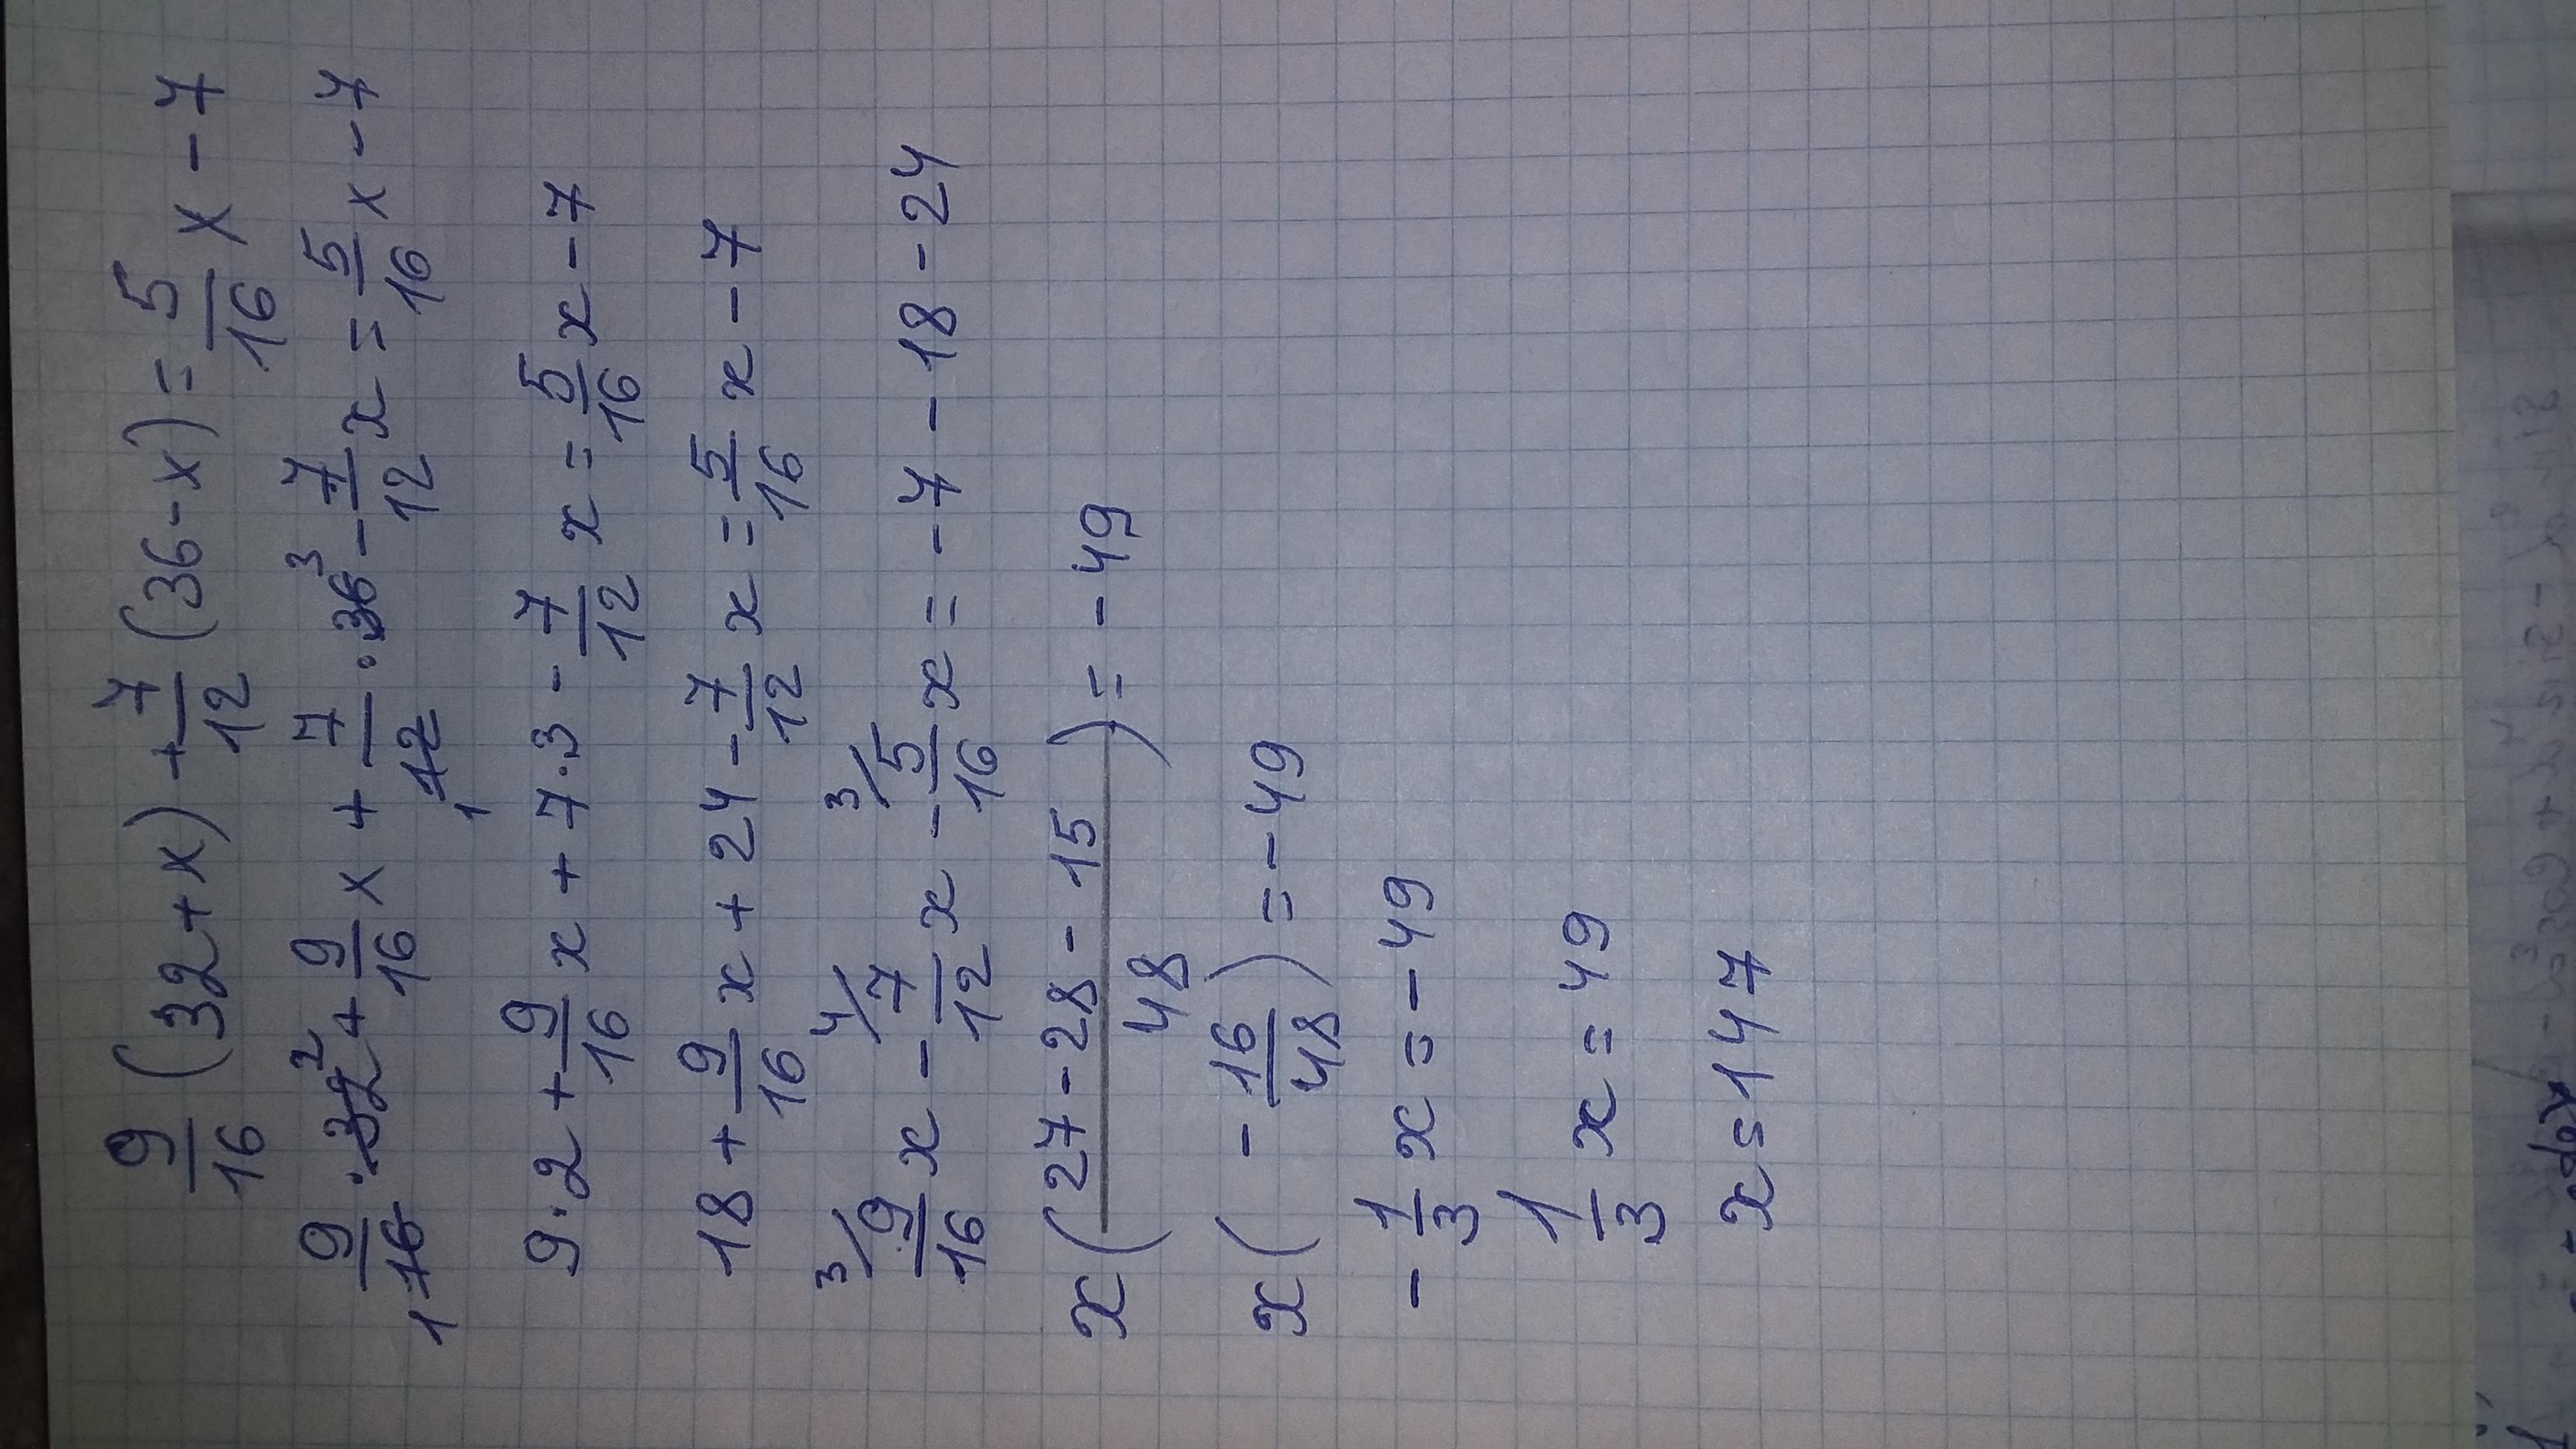 9/16 (32 + x) + 7/12 (36 - x) = 5/16 x - 7
9/16 · 32 2 + 9/16 x + 7/12 · 36 3 - 7/12 x = 5/16 x - 7
1 1
9 · 2 + 9/16 x + 7 · 3 - 7/12 x = 5/16 x - 7
18 + 9/16 x + 24 - 7/12 x = 5/16 x - 7
3/ 9/16 x - 4/ 7/12 x - 3/ 5/16 x = - 7 - 18 - 24
x ( 27 - 28 - 15 / 48 ) = - 49
x ( - 16/48 ) = - 49
- 1/3 x = - 49
1/3 x = 49
x = 147